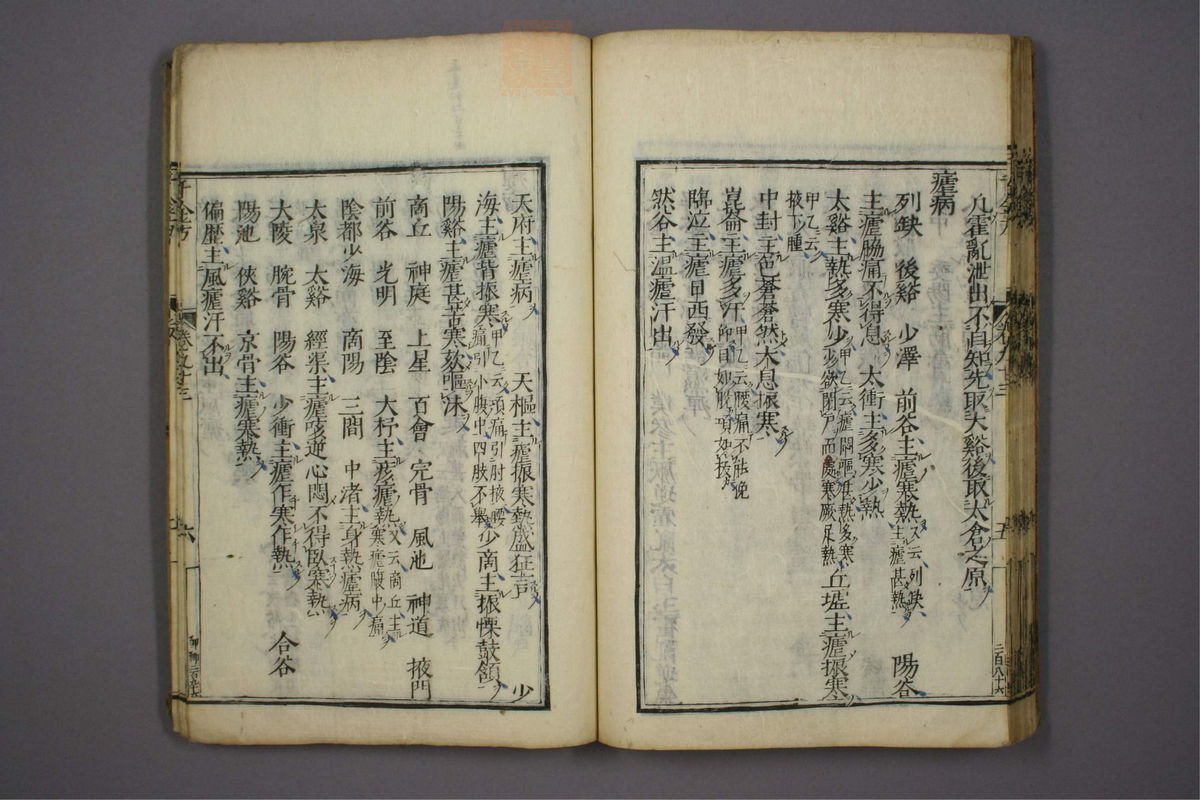 凡霍亂泄出不自知先取太谿後取太倉之原
瘧病
列缺 後谿 少澤 前谷主瘧寒熱又云列缺主瘧甚熱 陽谷
主瘧脇痛不得息 太衝主多寒少熱
太谿主熱多寒少甲乙云瘧悶嘔甚熱多寒少欲閉戶而處寒厥足熱 丘墟主瘧振寒
甲乙云掖下腫
中封主色蒼蒼然太息振寒
崑崙主瘧多汗甲乙云腰痛不能俛仰目如脫項如拔
臨泣主瘧日西發
然谷主溫瘧汗出
五
二百八十六
天府主瘧病 天樞主瘧振寒熱盛狂言 少
海主瘧背振寒甲乙云項痛引肘掖腰痛引小腹中四肢不舉 少商主振慄鼓頷
陽谿主瘧甚苦寒欬嘔沫
商丘 神庭 上星 百會 完骨 風池 神道 掖門
前谷 光明 至陰 大杼主痎瘧熱又云商丘主寒瘧腹中痛
陰都少海 商陽 三間 中渚主身熱瘧病
太泉 太谿 經渠主瘧咳逆心悶不得臥寒熱
大陵 腕骨 陽谷 少衝主瘧乍寒乍熱 合谷
陽池 俠谿 京骨主瘧寒熱
偏歷主風瘧汗不出
千金方
卷九十三
六